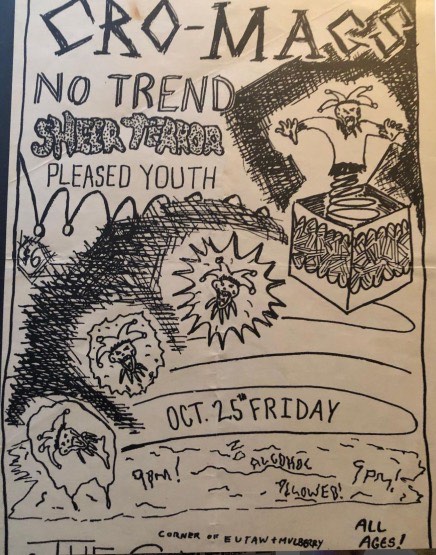 CRO-MAGS
NO TREND
SHEER TERROR
PLEASED YOUTH
$6
OCT. 25th FRIDAY
9PM! NO ALCOHOL ALLOWED! 9PM!
CORNER OF EUTAW + MULBERRY
ALL AGES!
THE